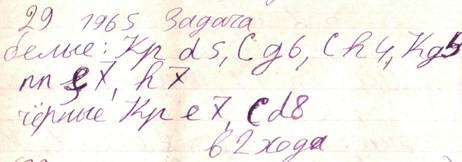 29 1965 Задача
белые: Кр d5, С g6, С h4, К g5
пп g7, h7
чёрные Кр e7, С d8
в 2 хода